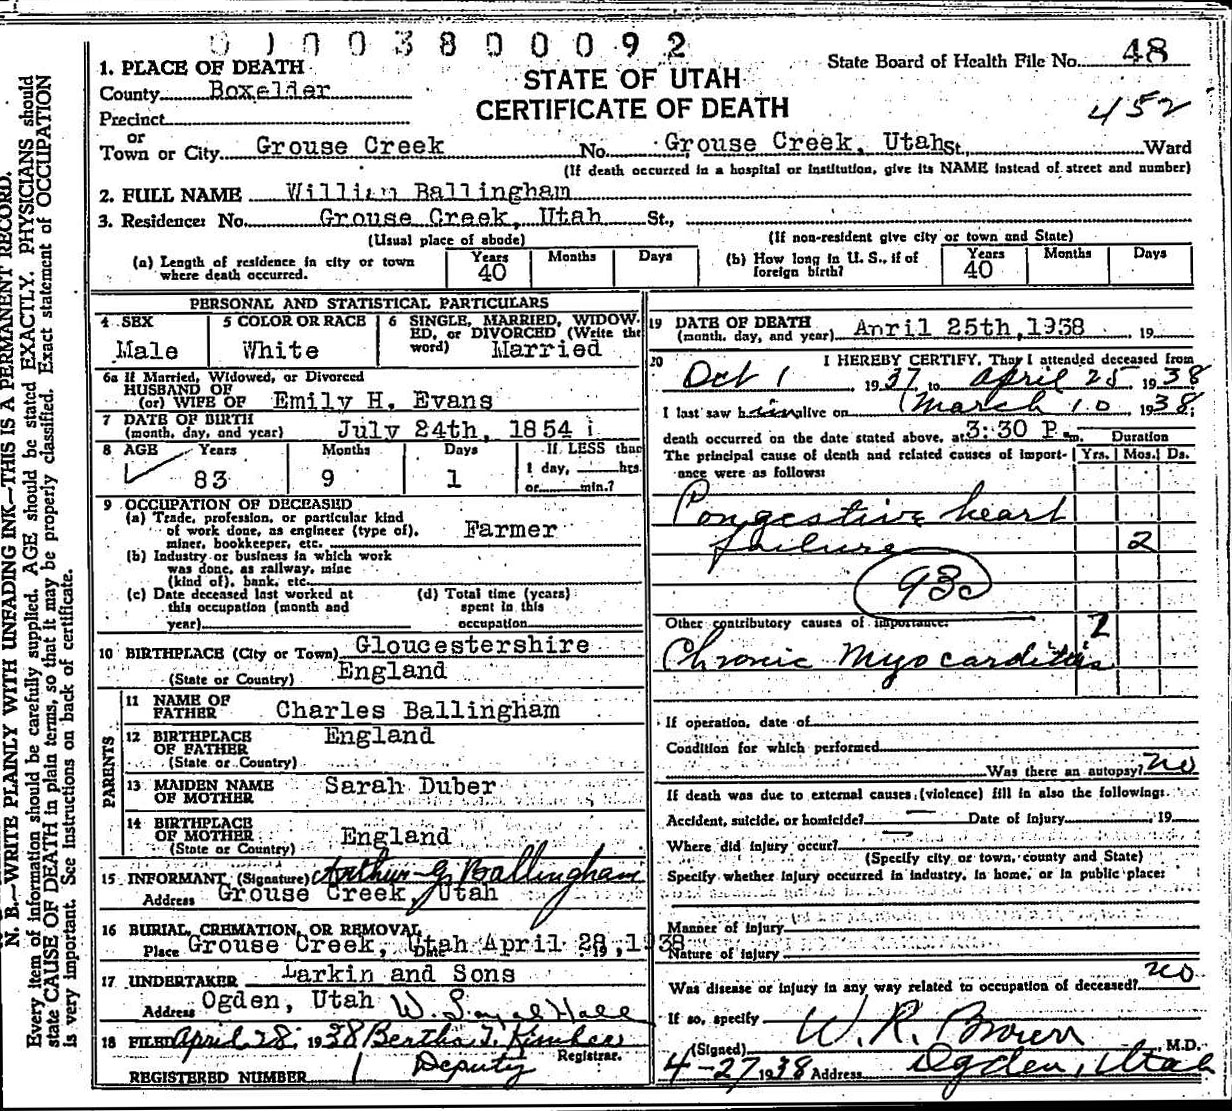 0100380092
1. PLACE OF DEATH
STATE OF UTAH
CERTIFICATE OF DEATH
State Board of Health File No. 48
452
County Boxelder
Precinct
or
Town or City Grouse Creek No. Grouse Creek, Utah St., Ward
(If death occurred in a hospital or institution, give its NAME instead of street and number)
2. FULL NAME William Ballingham
3. Residence: No. Grouse Creek, Utah St.,
(Usual place of abode) (If non-resident give city or town and State)
(a) Length of residence in city or town where death occurred. Years 40 Months Days
(b) How long in U. S., if of foreign birth? Years 40 Months Days
PERSONAL AND STATISTICAL PARTICULARS
4 SEX Male
5 COLOR OR RACE White
6 SINGLE, MARRIED, WIDOWED, or DIVORCED (Write the word) Married
6a If Married, Widowed, or Divorced
HUSBAND OF
(or) WIFE OF Emily H. Evans
7 DATE OF BIRTH
(month, day, and year) July 24th, 1854
8 AGE Years 83 Months 9 Days 1 If LESS than 1 day, hrs. or min.?
9 OCCUPATION OF DECEASED
(a) Trade, profession, or particular kind
of work done, as engineer (type of),
miner, bookkeeper, etc. Farmer
(b) Industry or business in which work
was done, as railway, mine
(kind of), bank, etc.
(c) Date deceased last worked at
this occupation (month and
year)
(d) Total time (years)
spent in this
occupation
10 BIRTHPLACE (City or Town) Gloucestershire
(State or Country) England
PARENTS
11 NAME OF FATHER Charles Ballingham
12 BIRTHPLACE OF FATHER England
(State or Country)
13 MAIDEN NAME OF MOTHER Sarah Duber
14 BIRTHPLACE OF MOTHER England
(State or Country)
15 INFORMANT (Signature) Arthur G. Ballingham
Address Grouse Creek, Utah
16 BURIAL, CREMATION, OR REMOVAL
Place Grouse Creek, Utah Date April 28, 1938
17 UNDERTAKER Larkin and Sons
Address Ogden, Utah W. Hall
18 FILED April 28, 1938 Bertha T. Kimber
Registrar.
Deputy
REGISTERED NUMBER 1
19 DATE OF DEATH
(month, day, and year) April 25th, 1938 19
20 I HEREBY CERTIFY, That I attended deceased from
Oct 1 1937 to April 25 1938
I last saw him alive on March 10 1938;
death occurred on the date stated above, at 3:30 P.m. Duration
The principal cause of death and related causes of importance were as follows: Yrs. Mos. Ds.
Congestive heart
failure 2
93c
Other contributory causes of importance:
2
Chronic Myocarditis
If operation, date of
Condition for which performed
Was there an autopsy? no
If death was due to external causes (violence) fill in also the following:
Accident, suicide, or homicide? Date of injury 19
Where did injury occur?
(Specify city or town, county and State)
Specify whether injury occurred in industry, in home, or in public place:
Manner of injury
Nature of injury
Was disease or injury in any way related to occupation of deceased? no
If so, specify
(Signed) W. R. Brown M.D.
4-27 1938 Address Ogden, Utah
N. B.—WRITE PLAINLY WITH UNFADING INK—THIS IS A PERMANENT RECORD.
Every item of information should be carefully supplied. AGE should be stated EXACTLY. PHYSICIANS should
state CAUSE OF DEATH in plain terms, so that it may be properly classified. Exact statement of OCCUPATION
is very important. See instructions on back of certificate.